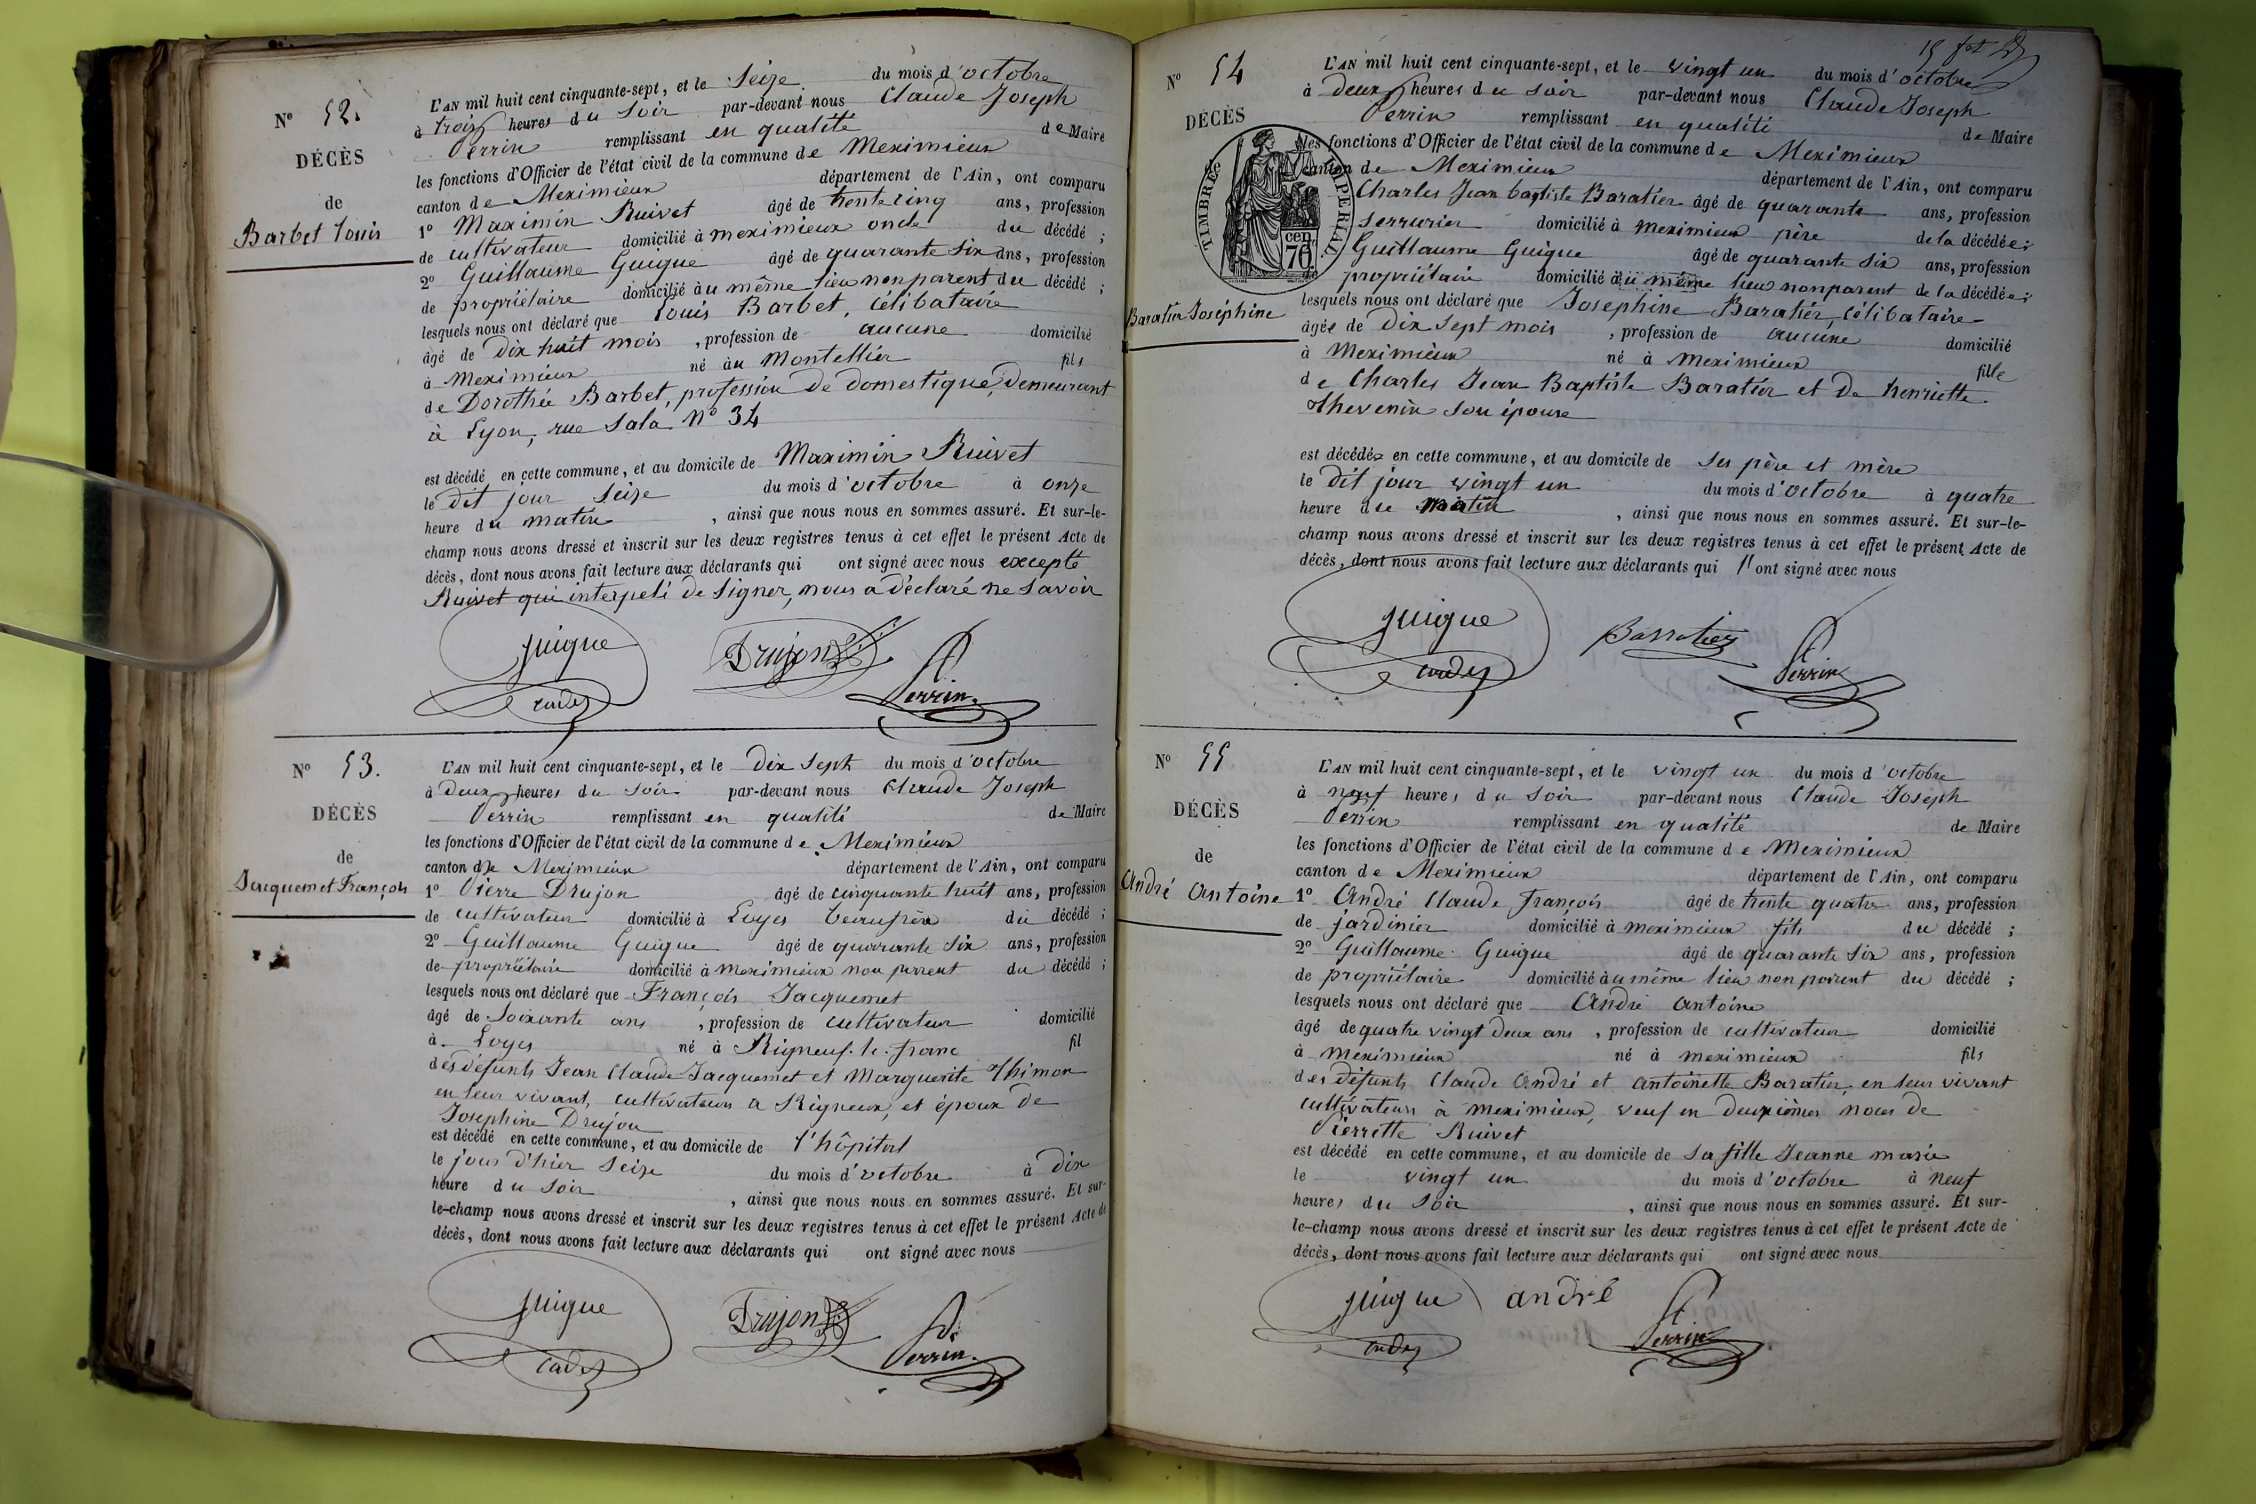 Nº 52.
DÉCÈS
de
Barbet Louis
L'AN mil huit cent cinquante-sept, et le Seize du mois d'octobre
à trois heures du soir par-devant nous Claude Joseph
Perrin remplissant en qualité de Maire
les fonctions d'Officier de l'état civil de la commune de Meximieux
canton de Meximieux département de l'Ain, ont comparu
1º Maximin Ruivet âgé de trente cinq ans, profession
de cultivateur domicilié à meximieux oncle du décédé ;
2º Guillaume Guigue âgé de quarante six ans, profession
de propriétaire domicilié àu même lieu non parent du décédé ;
lesquels nous ont déclaré que Louis Barbet, célibataire
âgé de dix huit mois , profession de aucune domicilié
à Meximieux né àu Montellier fils
de Dorothée Barbet, profession de domestique, demeurant
à Lyon, rue Sala Nº 34
est décédé en cette commune, et au domicile de Maximin Ruivet
le dit jour Seize du mois d'octobre à onze
heure du matin , ainsi que nous nous en sommes assuré. Et sur-le-
champ nous avons dressé et inscrit sur les deux registres tenus à cet effet le présent Acte de
décès, dont nous avons fait lecture aux déclarants qui ont signé avec nous excepté
Ruivet qui interpelé de signer, nous a déclaré ne savoir
guigue Drujon Perrin
Nº 53.
DÉCÈS
de
Jacquemet François
L'AN mil huit cent cinquante-sept, et le dix sept du mois d'octobre
à deux heures du soir par-devant nous Claude Joseph
Perrin remplissant en qualité de Maire
les fonctions d'Officier de l'état civil de la commune de Meximieux
canton de Meximieux département de l'Ain, ont comparu
1º Pierre Drujon âgé de cinquante huit ans, profession
de cultivateur domicilié à Loyes beaufrère du décédé ;
2º Guillaume Guigue âgé de quarante six ans, profession
de propriétaire domicilié à meximieux non parent du décédé ;
lesquels nous ont déclaré que François Jacquemet
âgé de soixante ans , profession de cultivateur domicilié
à Loyes né à Rigneux-le-franc fil
des défunts Jean Claude Jacquemet et Marguerite Thimon
en leur vivant, cultivateurs à Rigneux, et époux de
Josephine Drujon
est décédé en cette commune, et au domicile de l'hôpital
le jour d'hier Seize du mois d'octobre à dix
heure du soir , ainsi que nous nous en sommes assuré. Et sur-
le-champ nous avons dressé et inscrit sur les deux registres tenus à cet effet le présent Acte de
décès, dont nous avons fait lecture aux déclarants qui ont signé avec nous
guigue Drujon Perrin
Nº 54
DÉCÈS
TIMBRE IMPÉRIAL
70 cen.
Baratier Joséphine
L'AN mil huit cent cinquante-sept, et le vingt un du mois d'octobre
à deux heures du soir par-devant nous Claude Joseph
Perrin remplissant en qualité de Maire
les fonctions d'Officier de l'état civil de la commune de Meximieux
canton de Meximieux département de l'Ain, ont comparu
Charles Jean baptiste Baratier âgé de quarante ans, profession
serrurier domicilié à meximieux père de la décédée ;
Guillaume Guigue âgé de quarante six ans, profession
de propriétaire domicilié àu même lieu non parent de la décédée ;
lesquels nous ont déclaré que Josephine Baratier, célibataire
âgée de dix sept mois , profession de aucune domicilié
à Meximieux né à meximieux fille
de Charles Jean Baptiste Baratier et de henriette
thevenin son épouse
est décédée en cette commune, et au domicile de ses père et mère
le dit jour vingt un du mois d'octobre à quatre
heure du matin , ainsi que nous nous en sommes assuré. Et sur-le-
champ nous avons dressé et inscrit sur les deux registres tenus à cet effet le présent Acte de
décès, dont nous avons fait lecture aux déclarants qui ont signé avec nous
guigue Barratier Perrin
Nº 55
DÉCÈS
de
André Antoine
L'AN mil huit cent cinquante-sept, et le vingt un du mois d'octobre
à neuf heures du soir par-devant nous Claude Joseph
Perrin remplissant en qualité de Maire
les fonctions d'Officier de l'état civil de la commune de Meximieux
canton de Meximieux département de l'Ain, ont comparu
1º André Claude françois âgé de trente quatre ans, profession
de jardinier domicilié à meximieux fils du décédé ;
2º Guillaume Guigue âgé de quarante six ans, profession
de propriétaire domicilié àu même lieu non parent du décédé ;
lesquels nous ont déclaré que André Antoine
âgé de quatre vingt deux ans , profession de cultivateur domicilié
à meximieux né à meximieux fils
des défunts Claude André et Antoinette Baratier, en leur vivant
cultivateurs à meximieux, veuf en deuxièmes noces de
Pierrette Ruivet
est décédé en cette commune, et au domicile de sa fille Jeanne marie
le vingt un du mois d'octobre à neuf
heures du soir , ainsi que nous nous en sommes assuré. Et sur-
le-champ nous avons dressé et inscrit sur les deux registres tenus à cet effet le présent Acte de
décès, dont nous avons fait lecture aux déclarants qui ont signé avec nous
guigue andré Perrin